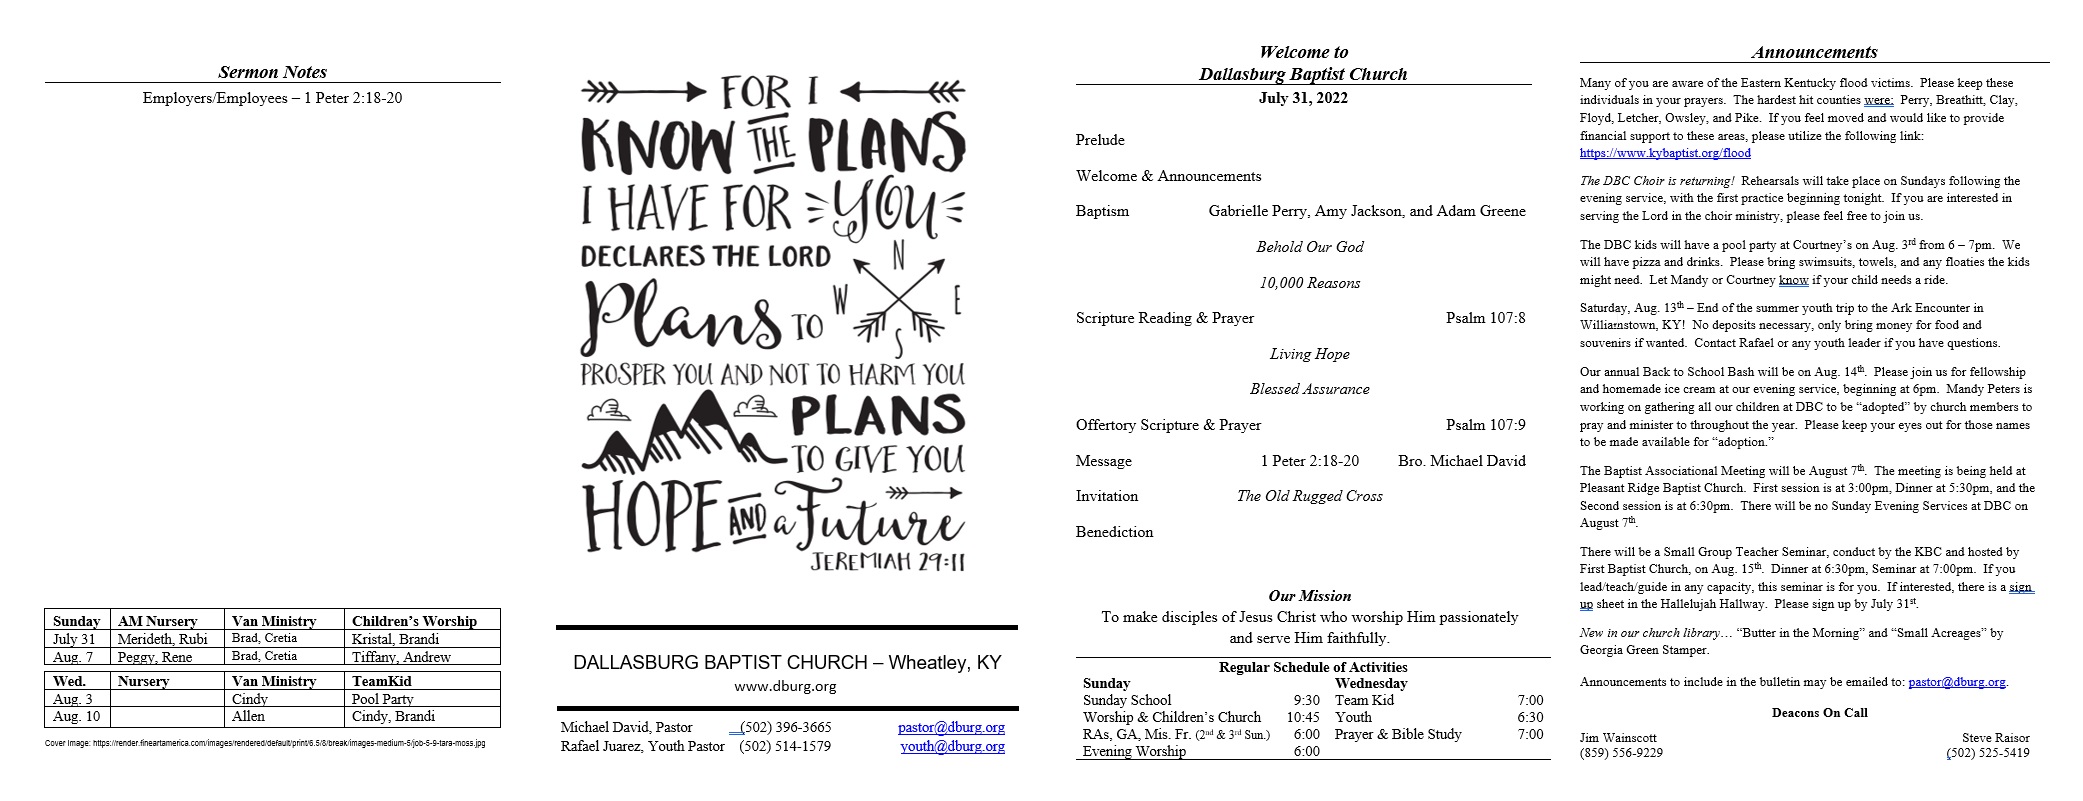 Sermon Notes
Employers/Employees – 1 Peter 2:18-20
Sunday AM Nursery Van Ministry Children's Worship
July 31 Merideth, Rubi Brad, Cretia Kristal, Brandi
Aug. 7 Peggy, Rene Brad, Cretia Tiffany, Andrew
Wed. Nursery Van Ministry TeamKid
Aug. 3 Cindy Pool Party
Aug. 10 Allen Cindy, Brandi
Cover Image: https://render.fineartamerica.com/images/rendered/default/print/6.5/8/break/images-medium-5/job-5-9-tara-moss.jpg
FOR I
KNOW THE PLANS
I HAVE FOR YOU
DECLARES THE LORD
N
W E
S
Plans TO
PROSPER YOU AND NOT TO HARM YOU
PLANS
TO GIVE YOU
HOPE AND a Future
JEREMIAH 29:11
DALLASBURG BAPTIST CHURCH – Wheatley, KY
www.dburg.org
Michael David, Pastor (502) 396-3665 pastor@dburg.org
Rafael Juarez, Youth Pastor (502) 514-1579 youth@dburg.org
Welcome to
Dallasburg Baptist Church
July 31, 2022
Prelude
Welcome & Announcements
Baptism Gabrielle Perry, Amy Jackson, and Adam Greene
Behold Our God
10,000 Reasons
Scripture Reading & Prayer Psalm 107:8
Living Hope
Blessed Assurance
Offertory Scripture & Prayer Psalm 107:9
Message 1 Peter 2:18-20 Bro. Michael David
Invitation The Old Rugged Cross
Benediction
Our Mission
To make disciples of Jesus Christ who worship Him passionately
and serve Him faithfully.
Regular Schedule of Activities
Sunday Wednesday
Sunday School 9:30 Team Kid 7:00
Worship & Children's Church 10:45 Youth 6:30
RAs, GA, Mis. Fr. (2nd & 3rd Sun.) 6:00 Prayer & Bible Study 7:00
Evening Worship 6:00
Announcements
Many of you are aware of the Eastern Kentucky flood victims. Please keep these
individuals in your prayers. The hardest hit counties were: Perry, Breathitt, Clay,
Floyd, Letcher, Owsley, and Pike. If you feel moved and would like to provide
financial support to these areas, please utilize the following link:
https://www.kybaptist.org/flood
The DBC Choir is returning! Rehearsals will take place on Sundays following the
evening service, with the first practice beginning tonight. If you are interested in
serving the Lord in the choir ministry, please feel free to join us.
The DBC kids will have a pool party at Courtney's on Aug. 3rd from 6 – 7pm. We
will have pizza and drinks. Please bring swimsuits, towels, and any floaties the kids
might need. Let Mandy or Courtney know if your child needs a ride.
Saturday, Aug. 13th – End of the summer youth trip to the Ark Encounter in
Williamstown, KY! No deposits necessary, only bring money for food and
souvenirs if wanted. Contact Rafael or any youth leader if you have questions.
Our annual Back to School Bash will be on Aug. 14th. Please join us for fellowship
and homemade ice cream at our evening service, beginning at 6pm. Mandy Peters is
working on gathering all our children at DBC to be "adopted" by church members to
pray and minister to throughout the year. Please keep your eyes out for those names
to be made available for "adoption."
The Baptist Associational Meeting will be August 7th. The meeting is being held at
Pleasant Ridge Baptist Church. First session is at 3:00pm, Dinner at 5:30pm, and the
Second session is at 6:30pm. There will be no Sunday Evening Services at DBC on
August 7th.
There will be a Small Group Teacher Seminar, conduct by the KBC and hosted by
First Baptist Church, on Aug. 15th. Dinner at 6:30pm, Seminar at 7:00pm. If you
lead/teach/guide in any capacity, this seminar is for you. If interested, there is a sign
up sheet in the Hallelujah Hallway. Please sign up by July 31st.
New in our church library… "Butter in the Morning" and "Small Acreages" by
Georgia Green Stamper.
Announcements to include in the bulletin may be emailed to: pastor@dburg.org.
Deacons On Call
Jim Wainscott Steve Raisor
(859) 556-9229 (502) 525-5419